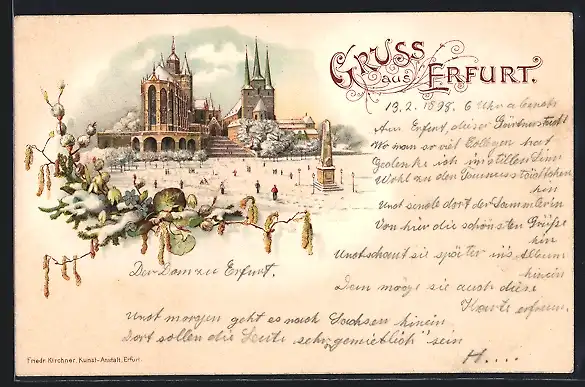 GRUSS aus ERFURT.
13.2.1898. 6 Uhr abends
Aus Erfurt, dieser Gärtnerstadt
Wo man so viel Collegen hat
Gedenke ich im stillen Sinn
Wohl zu den
hin
Und sende dort der Sammlerin
Von hier die schönsten Grüße
hin
Und schaut sie später in's Album
hinein
Dann möge sie auch diese
Karte erfreun.
Der Dom zu Erfurt.
Und morgen geht es nach Sachsen hinein
Dort sollen die Leute „sehr gemietlich" sein
H....
Friedr. Kirchner, Kunst-Anstalt, Erfurt.